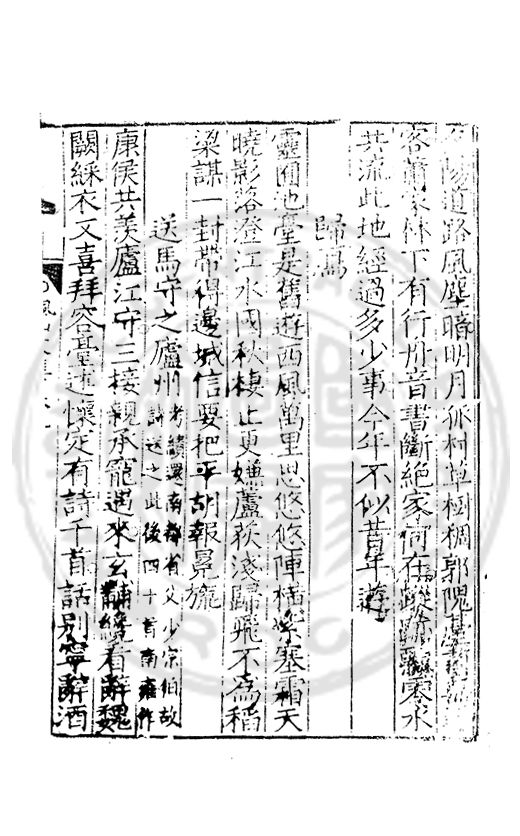 陽道路風塵暗明月孤村草樹稠郭隗臺
客蕭家林下有行舟音書斷絕家何在蹤跡飄零水
共流此地經過多少事今年不似昔年遊
歸鴈
靈囿池臺是舊遊西風萬里思悠悠陣橫紫塞霜天
曉影落澄江水國秋棲止更嫌蘆荻淺歸飛不為稻
粱謀一封帶得邊城信要把平胡報冕旒
送馬守之廬州考績還南都省父少宗伯故詩送之此後四十首南雍作
康侯共羨廬江守三接親承寵遇來玄黼看辭魏
闕綵衣又喜拜容臺述懷定有詩千首話別寧辭酒